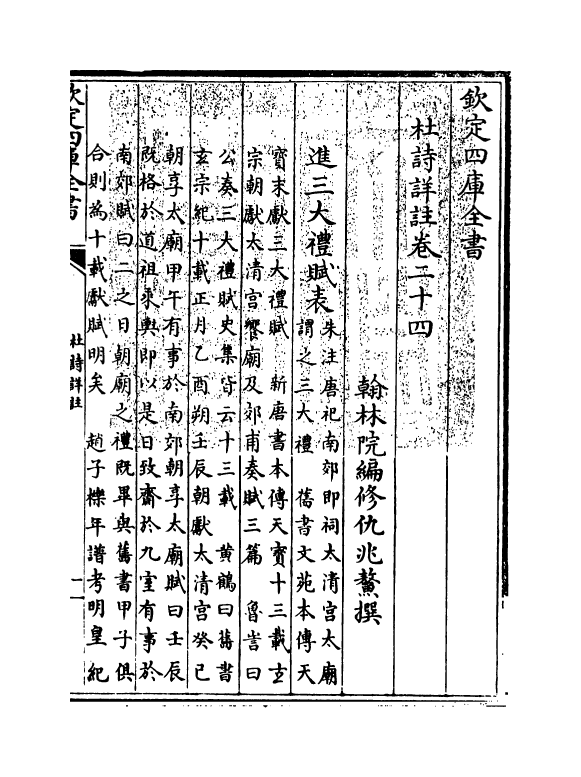 欽定四庫全書
杜詩詳註卷二十四
翰林院編修仇兆鰲撰
進三大禮賦表
朱注唐祀南郊即祠太清宫太廟
謂之三大禮　舊書文苑本傳天
寳末獻三大禮賦　新唐書本傳天寳十三載玄
宗朝獻太清宫饗廟及郊甫奏賦三篇　魯訔曰
公奏三大禮賦史集皆云十三載　黄鶴曰舊書
玄宗紀十載正月乙酉朔壬辰朝獻太清宫癸巳
朝享太廟甲午有事於南郊朝享太廟賦曰壬辰
既格於道祖乘輿即以是日致齋於九室有事於
南郊賦曰二之日朝廟之禮既畢與舊書甲子俱
合則為十載獻賦明矣　趙子櫟年譜考明皇紀
欽定四庫全書
杜詩詳註
一